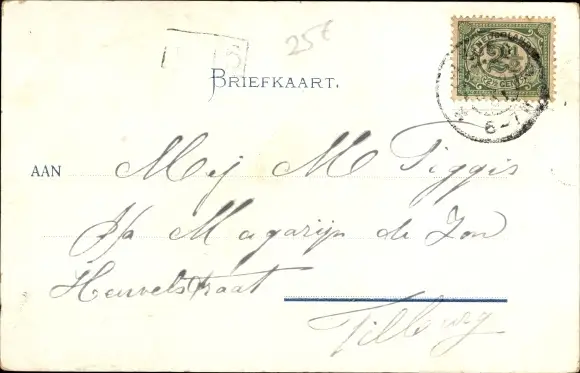 25c
BRIEFKAART.
AAN Mej M Piggis
p/a Magazijn de Zon
Heuvelstraat
Tilburg
2½
6-7